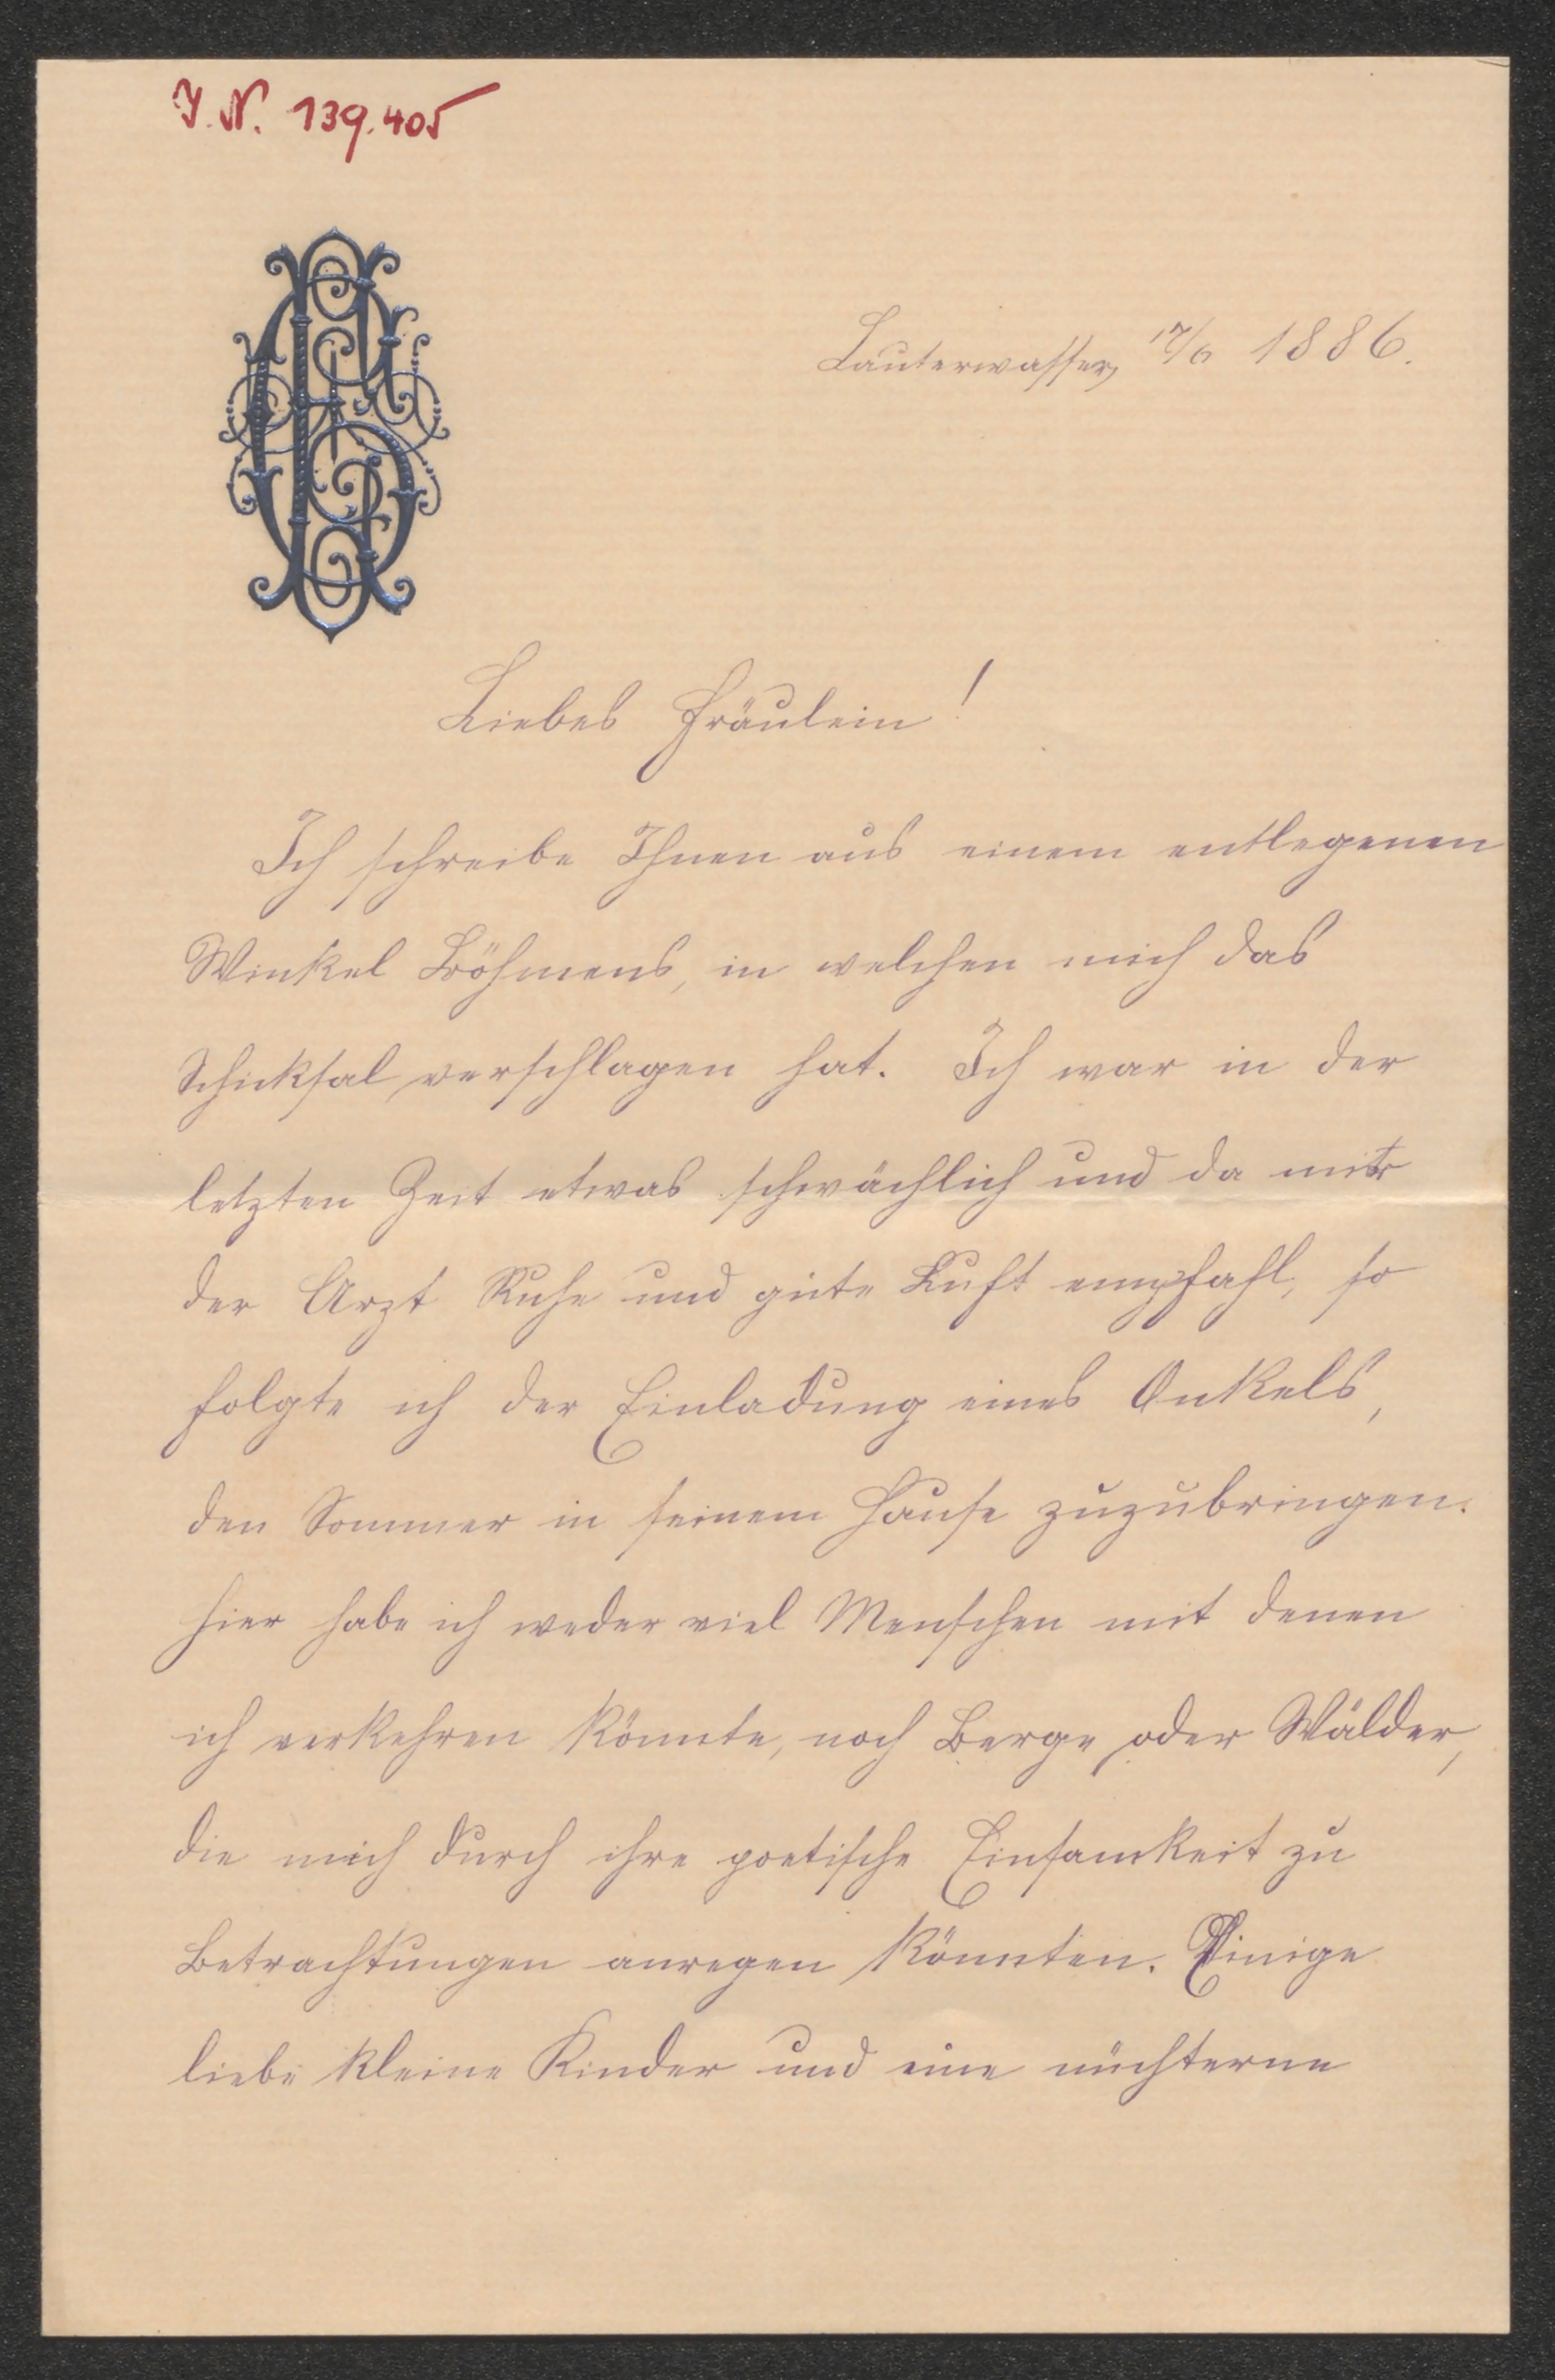 J. N. 139.405
Lauterwasser, 17/6 1886.
Liebes Fräulein!
Ich schreibe Ihnen aus einem entlegenen
Winkel Böhmens, in welchen mich das
Schicksal verschlagen hat. Ich war in der
letzten Zeit etwas schwächlich und da mir
der Arzt Ruhe und gute Luft empfahl, so
folgte ich der Einladung eines Onkels,
den Sommer in seinem Hause zuzubringen.
Hier habe ich weder viel Menschen mit denen
ich verkehren könnte, noch Berge oder Wälder,
die mich durch ihre poetische Einsamkeit zu
Betrachtungen anregen könnten. Einige
liebe kleine Kinder und eine nüchterne